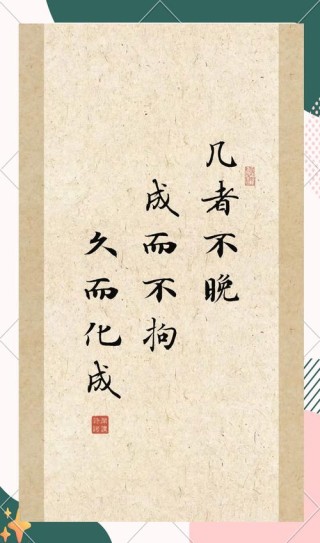 几者不晚
成而不拘
久而化成